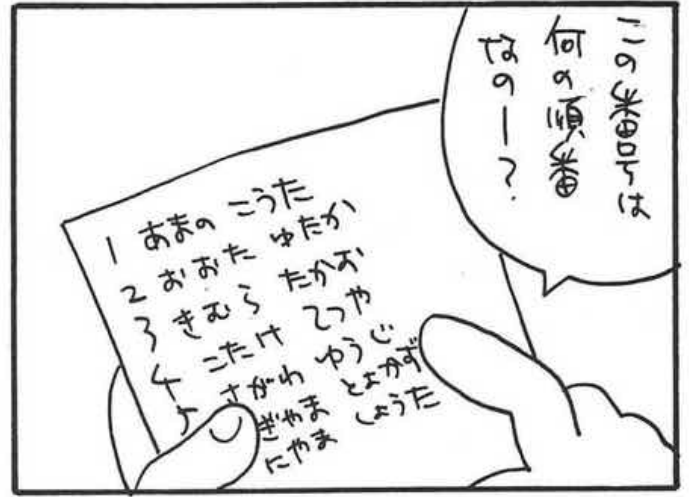 この番号は
何の順番
なのー?
1 あまの こうた
2 おおた ゆたか
3 きむら たかお
4 こたけ てつや
5 さがわ ゆうじ
ぎやま ともかず
にやま しょうた